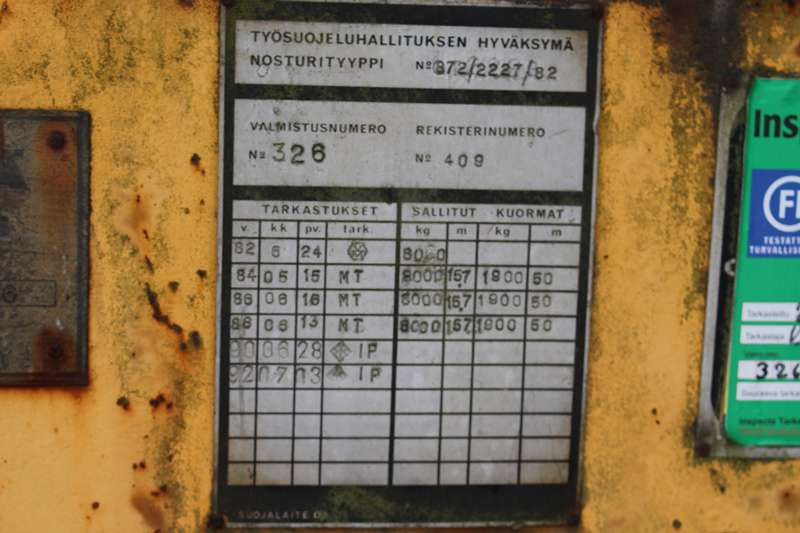 TYÖSUOJELUHALLITUKSEN HYVÄKSYMÄ
NOSTURITYYPPI № 872/2227/82
VALMISTUSNUMERO REKISTERINUMERO
№ 326 № 409
TARKASTUKSET SALLITUT KUORMAT
v. kk pv. tark. kg m kg m
82 6 24 8000
84 05 15 MT 8000 15.7 1900 50
86 06 16 MT 8000 15.7 1900 50
88 06 13 MT 8000 15.7 1900 50
90 06 28 IP
92 07 03 IP
SUOJALAITE
Ins
FI
TESTATT
TURVALLISU
Tarkastettu
Tarkastaja
326
Seuraava tarka
Inspecta Tarka